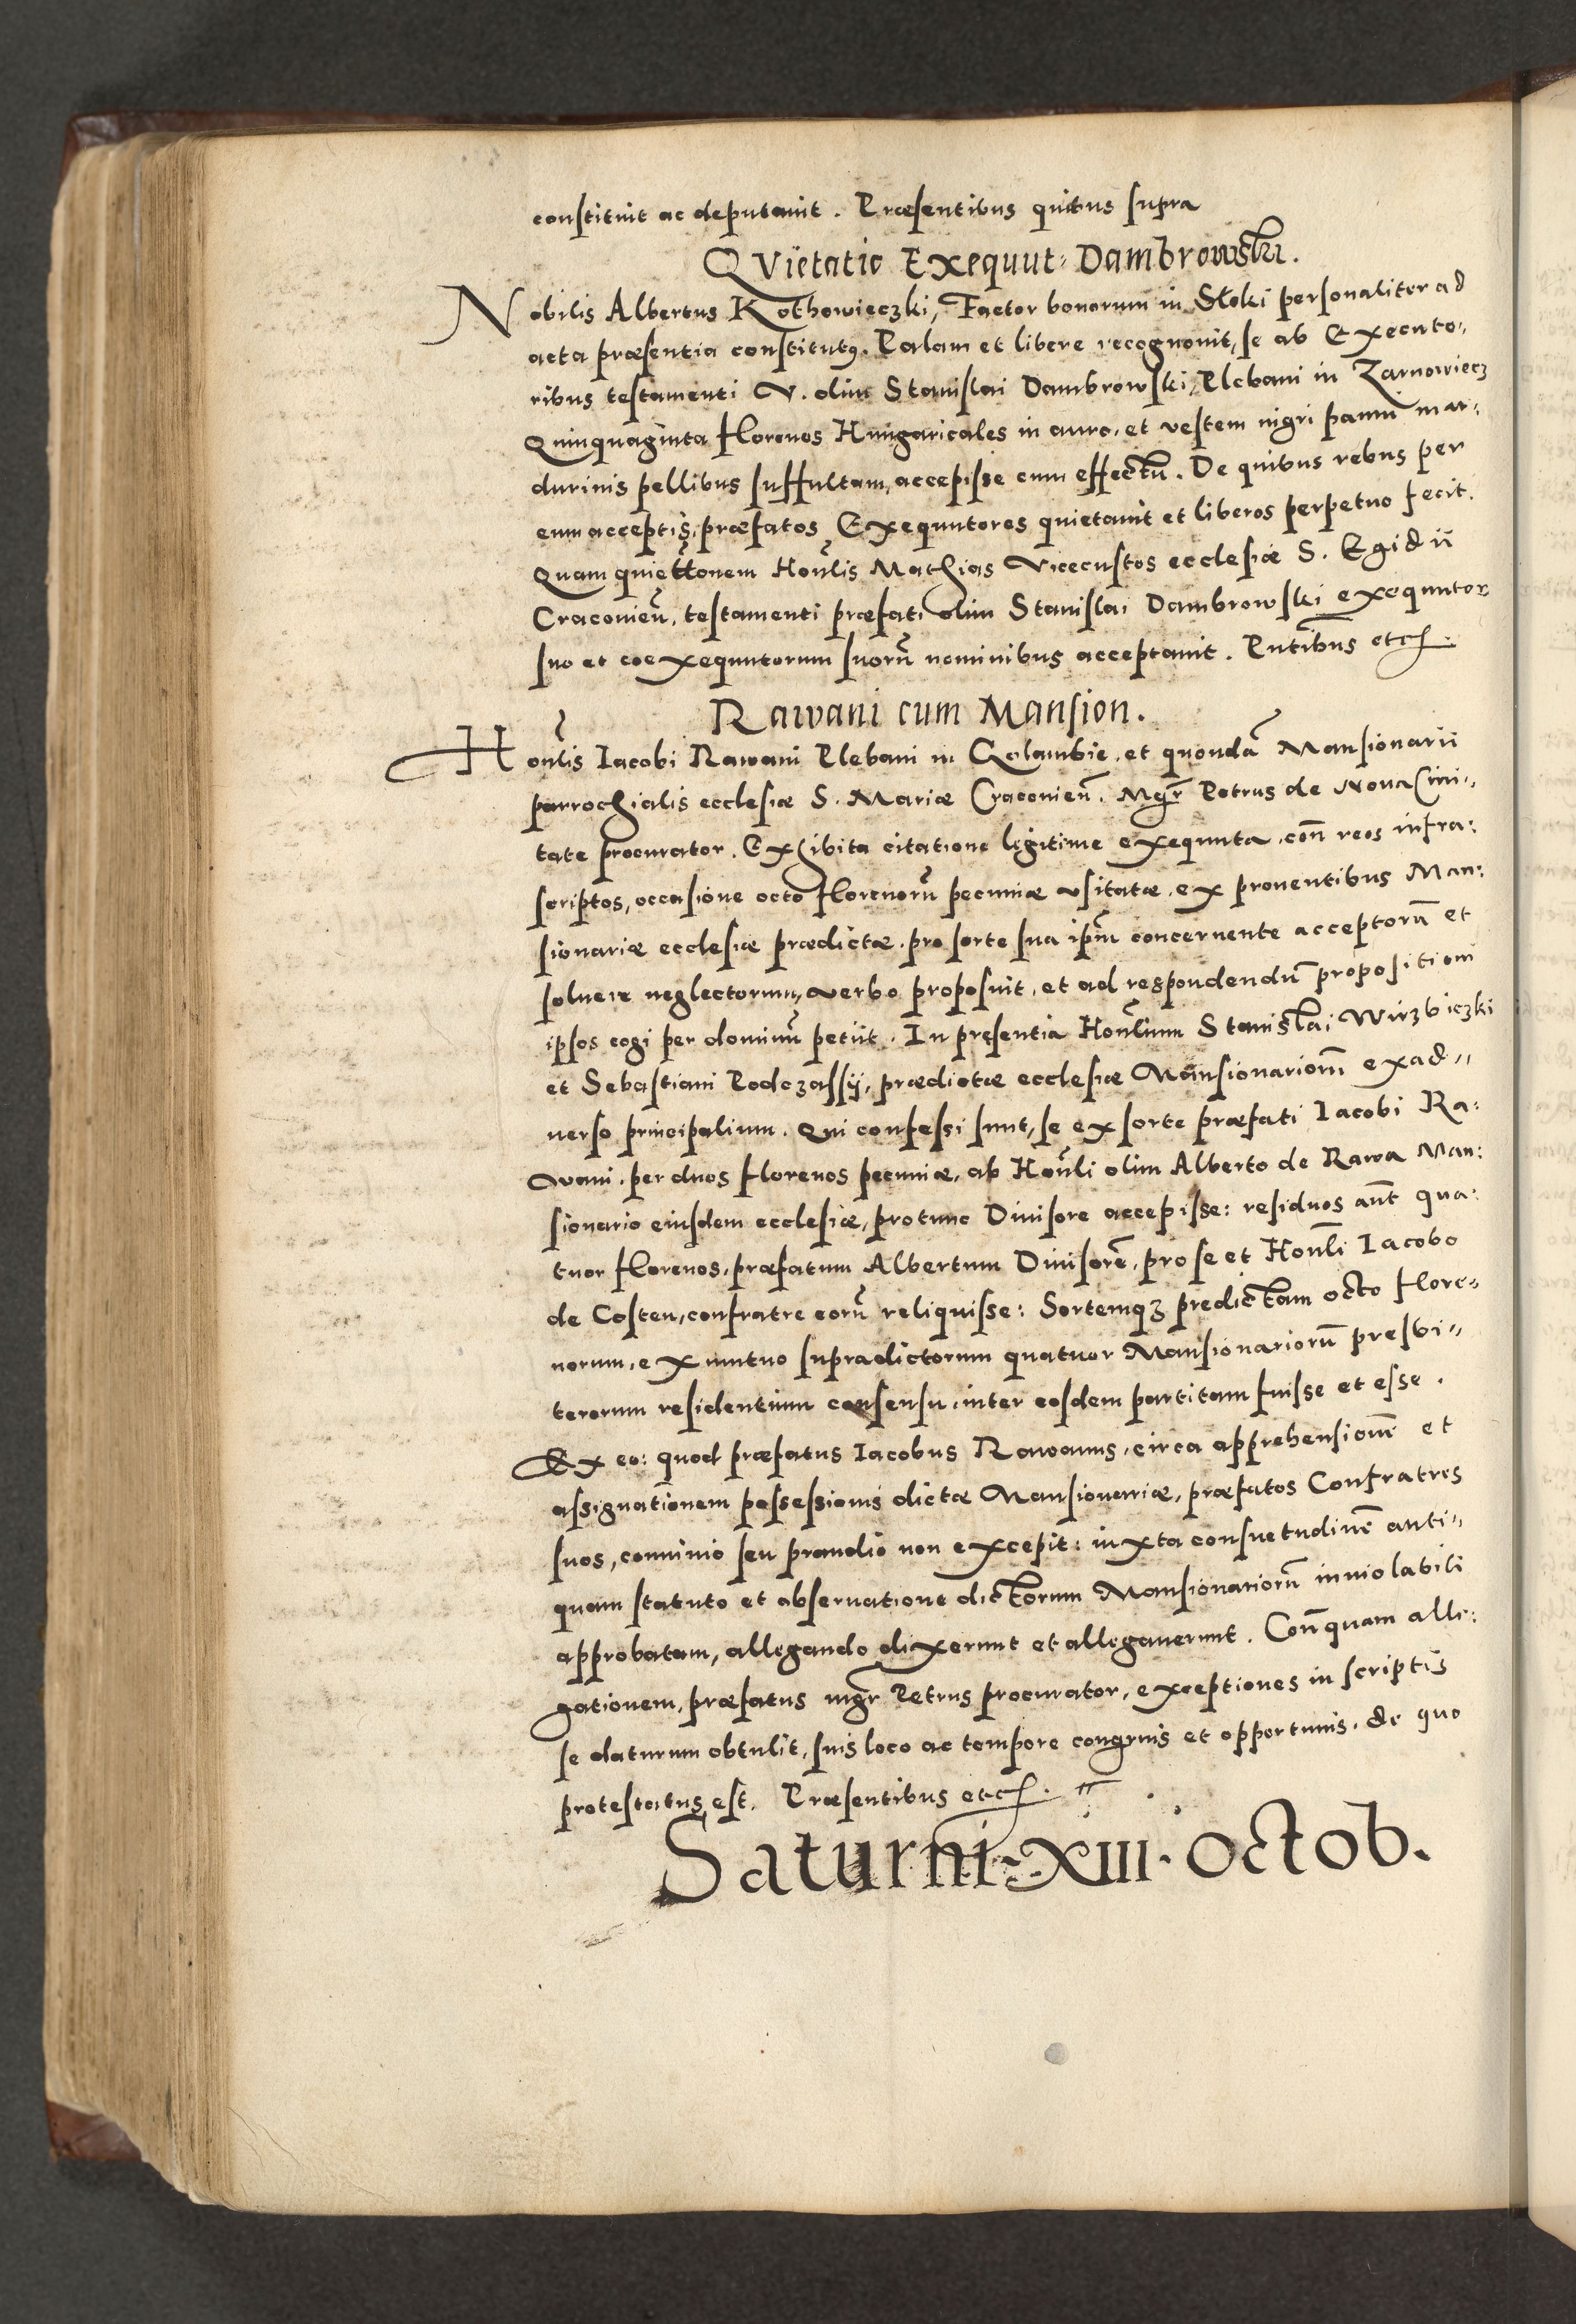 constituit ac deputauit. Præsentibus quibus supra
QVietatio Exequut: Dambrowski.
Nobilis Albertus Kothowieczki, Factor bonorum in Sloki personaliter ad
acta præsentia constitutꝰ. Palam et libere recognouit, se ab Executo„
ribus testamenti V. olim Stanislai Dambrowski, Plebani in Zarnowiecz
Quinquaginta florenos Hungaricales in auro, et vestem nigri panni mar„
durinis pellibus suffultam, accepisse cum effectu. De quibus rebus per
eum acceptis, præfatos Exequutores quietauit et liberos perpetuo fecit.
Quam quiettõnem Honẽlis Mathias Vicecustos ecclesiæ S. Egidii
Craconieñ, testamenti præfati olim Stanislai Dambrowski exequutor
suo et coexequutorum suorũ nominibus acceptauit. Pñtibus etc.
Rawani cum Mansion.
Honẽlis Iacobi Rawani Plebani in Golambie, et quondã Mansionarii
parrochialis ecclesiæ S. Mariæ Craconieñ. Mgr̃ Petrus de Noua Ciui„
tate procurator. Exhibita citatione legitime exequuta, coñ reos infra:
scriptos, occasione octo florenorũ pecuniæ vsitatæ, ex prouentibus Man:
sionariæ ecclesiæ prædictæ, pro sorte sua ipm̃ concernente acceptorũ et
soluere neglectorum, verbo proposuit, et ad respondendũ propositioni
ipsos cogi per dominũ petiit. In presentia Honẽlium Stanislai Wirzbiczki
et Sebastiani Podczassij, prædictæ ecclesiæ Mansionariorũ ex ad„
uerso principalium. Qui confessi sunt, se ex sorte præfati Iacobi Ra:
wani, per duos florenos pecuniæ, ab Honẽli olim Alberto de Rawa Man:
sionario eiusdem ecclesiæ, protunc Diuisore accepisse: residuos aũt qua:
tuor florenos, præfatum Albertum Diuisorẽ, pro se et Honli Iacobo
de Costen, confratre eorũ reliquisse: Sortemqꝫ predictam octo flore„
norum, ex mutuo supradictorum quatuor Mansionariorũ presbi„
terorum residentium consensu, inter eosdem partitam fuisse et esse.
Ex eo: quod præfatus Iacobus Rawanus, circa apprehensionẽ et
assignationem possessionis dictæ Mansionariæ, præfatos Confratres
suos, conuiuio seu prandio non excepit: iuxta consuetudinẽ anti„
quam statuto et obseruatione dictorum Mansionariorũ inuiolabili
approbatam, allegando dixerunt et allegauerunt. Coñ quam alle:
gationem, præfatus mgr̃ Petrus procurator, exceptiones in scriptis
se daturum obtulit, suis loco ac tempore congruis et opportunis, de quo
protestatus est. Præsentibus etc.
Saturni · XIII · Octob.